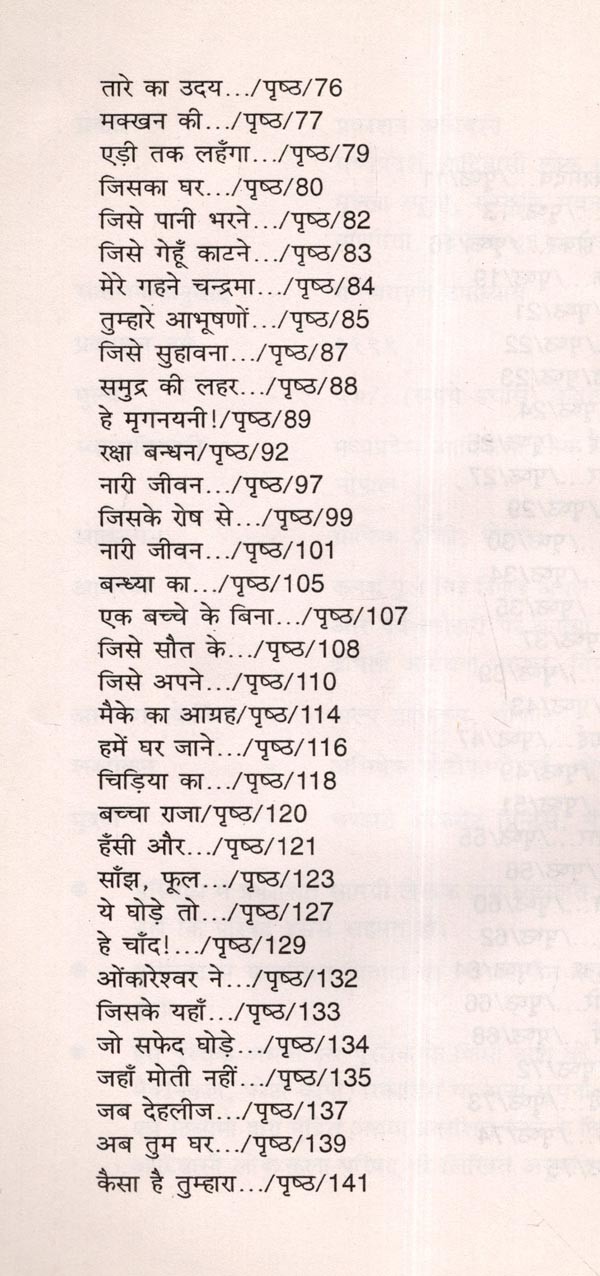 तारे का उदय.../पृष्ठ/76
मक्खन की.../पृष्ठ/77
एड़ी तक लहँगा.../पृष्ठ/79
जिसका घर.../पृष्ठ/80
जिसे पानी भरने.../पृष्ठ/82
जिसे गेहूँ काटने.../पृष्ठ/83
मेरे गहने चन्द्रमा.../पृष्ठ/84
तुम्हारे आभूषणों.../पृष्ठ/85
जिसे सुहावना.../पृष्ठ/87
समुद्र की लहर.../पृष्ठ/88
हे मृगनयनी!/पृष्ठ/89
रक्षा बन्धन/पृष्ठ/92
नारी जीवन.../पृष्ठ/97
जिसके रोष से.../पृष्ठ/99
नारी जीवन.../पृष्ठ/101
बन्ध्या का.../पृष्ठ/105
एक बच्चे के बिना.../पृष्ठ/107
जिसे सौत के.../पृष्ठ/108
जिसे अपने.../पृष्ठ/110
मैके का आग्रह/पृष्ठ/114
हमें घर जाने.../पृष्ठ/116
चिड़िया का.../पृष्ठ/118
बच्चा राजा/पृष्ठ/120
हँसी और.../पृष्ठ/121
साँझ, फूल.../पृष्ठ/123
ये घोड़े तो.../पृष्ठ/127
हे चाँद!.../पृष्ठ/129
ओंकारेश्वर ने.../पृष्ठ/132
जिसके यहाँ.../पृष्ठ/133
जो सफेद घोड़े.../पृष्ठ/134
जहाँ मोती नहीं.../पृष्ठ/135
जब देहलीज.../पृष्ठ/137
अब तुम घर.../पृष्ठ/139
कैसा है तुम्हारा.../पृष्ठ/141